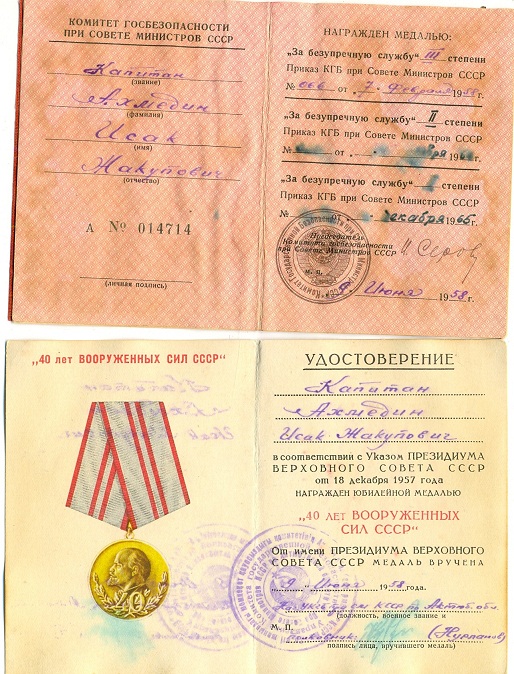 КОМИТЕТ ГОСБЕЗОПАСНОСТИ
ПРИ СОВЕТЕ МИНИСТРОВ СССР
Капитан
(звание)
Ахмедин
(фамилия)
Исак
(имя)
Жакупович
(отчество)
А № 014714
(личная подпись)
НАГРАЖДЕН МЕДАЛЬЮ:
„За безупречную службу“ III степени
Приказ КГБ при Совете Министров СССР
№ 066 от „7“ февраля 1958 г.
„За безупречную службу“ II степени
Приказ КГБ при Совете Министров СССР
№ от 196 г.
„За безупречную службу“ степени
Приказ КГБ при Совете Министров СССР
№ от декабря 1965 г.
Председатель
Комитета госбезопасности
при Совете Министров СССР
М. П.
9 Июня 1958 г.
„40 лет ВООРУЖЕННЫХ СИЛ СССР“
40
УДОСТОВЕРЕНИЕ
Капитан
Ахмедин
Исак Жакупович
в соответствии с Указом ПРЕЗИДИУМА
ВЕРХОВНОГО СОВЕТА СССР
от 18 декабря 1957 года
НАГРАЖДЕН ЮБИЛЕЙНОЙ МЕДАЛЬЮ
„40 ЛЕТ ВООРУЖЕННЫХ
СИЛ СССР“
От имени ПРЕЗИДИУМА ВЕРХОВНОГО
СОВЕТА СССР МЕДАЛЬ ВРУЧЕНА
9 Июня 1958 года.
(должность, военное звание и
М. П.
полковник (Нурпанов)
подпись лица, вручившего медаль)